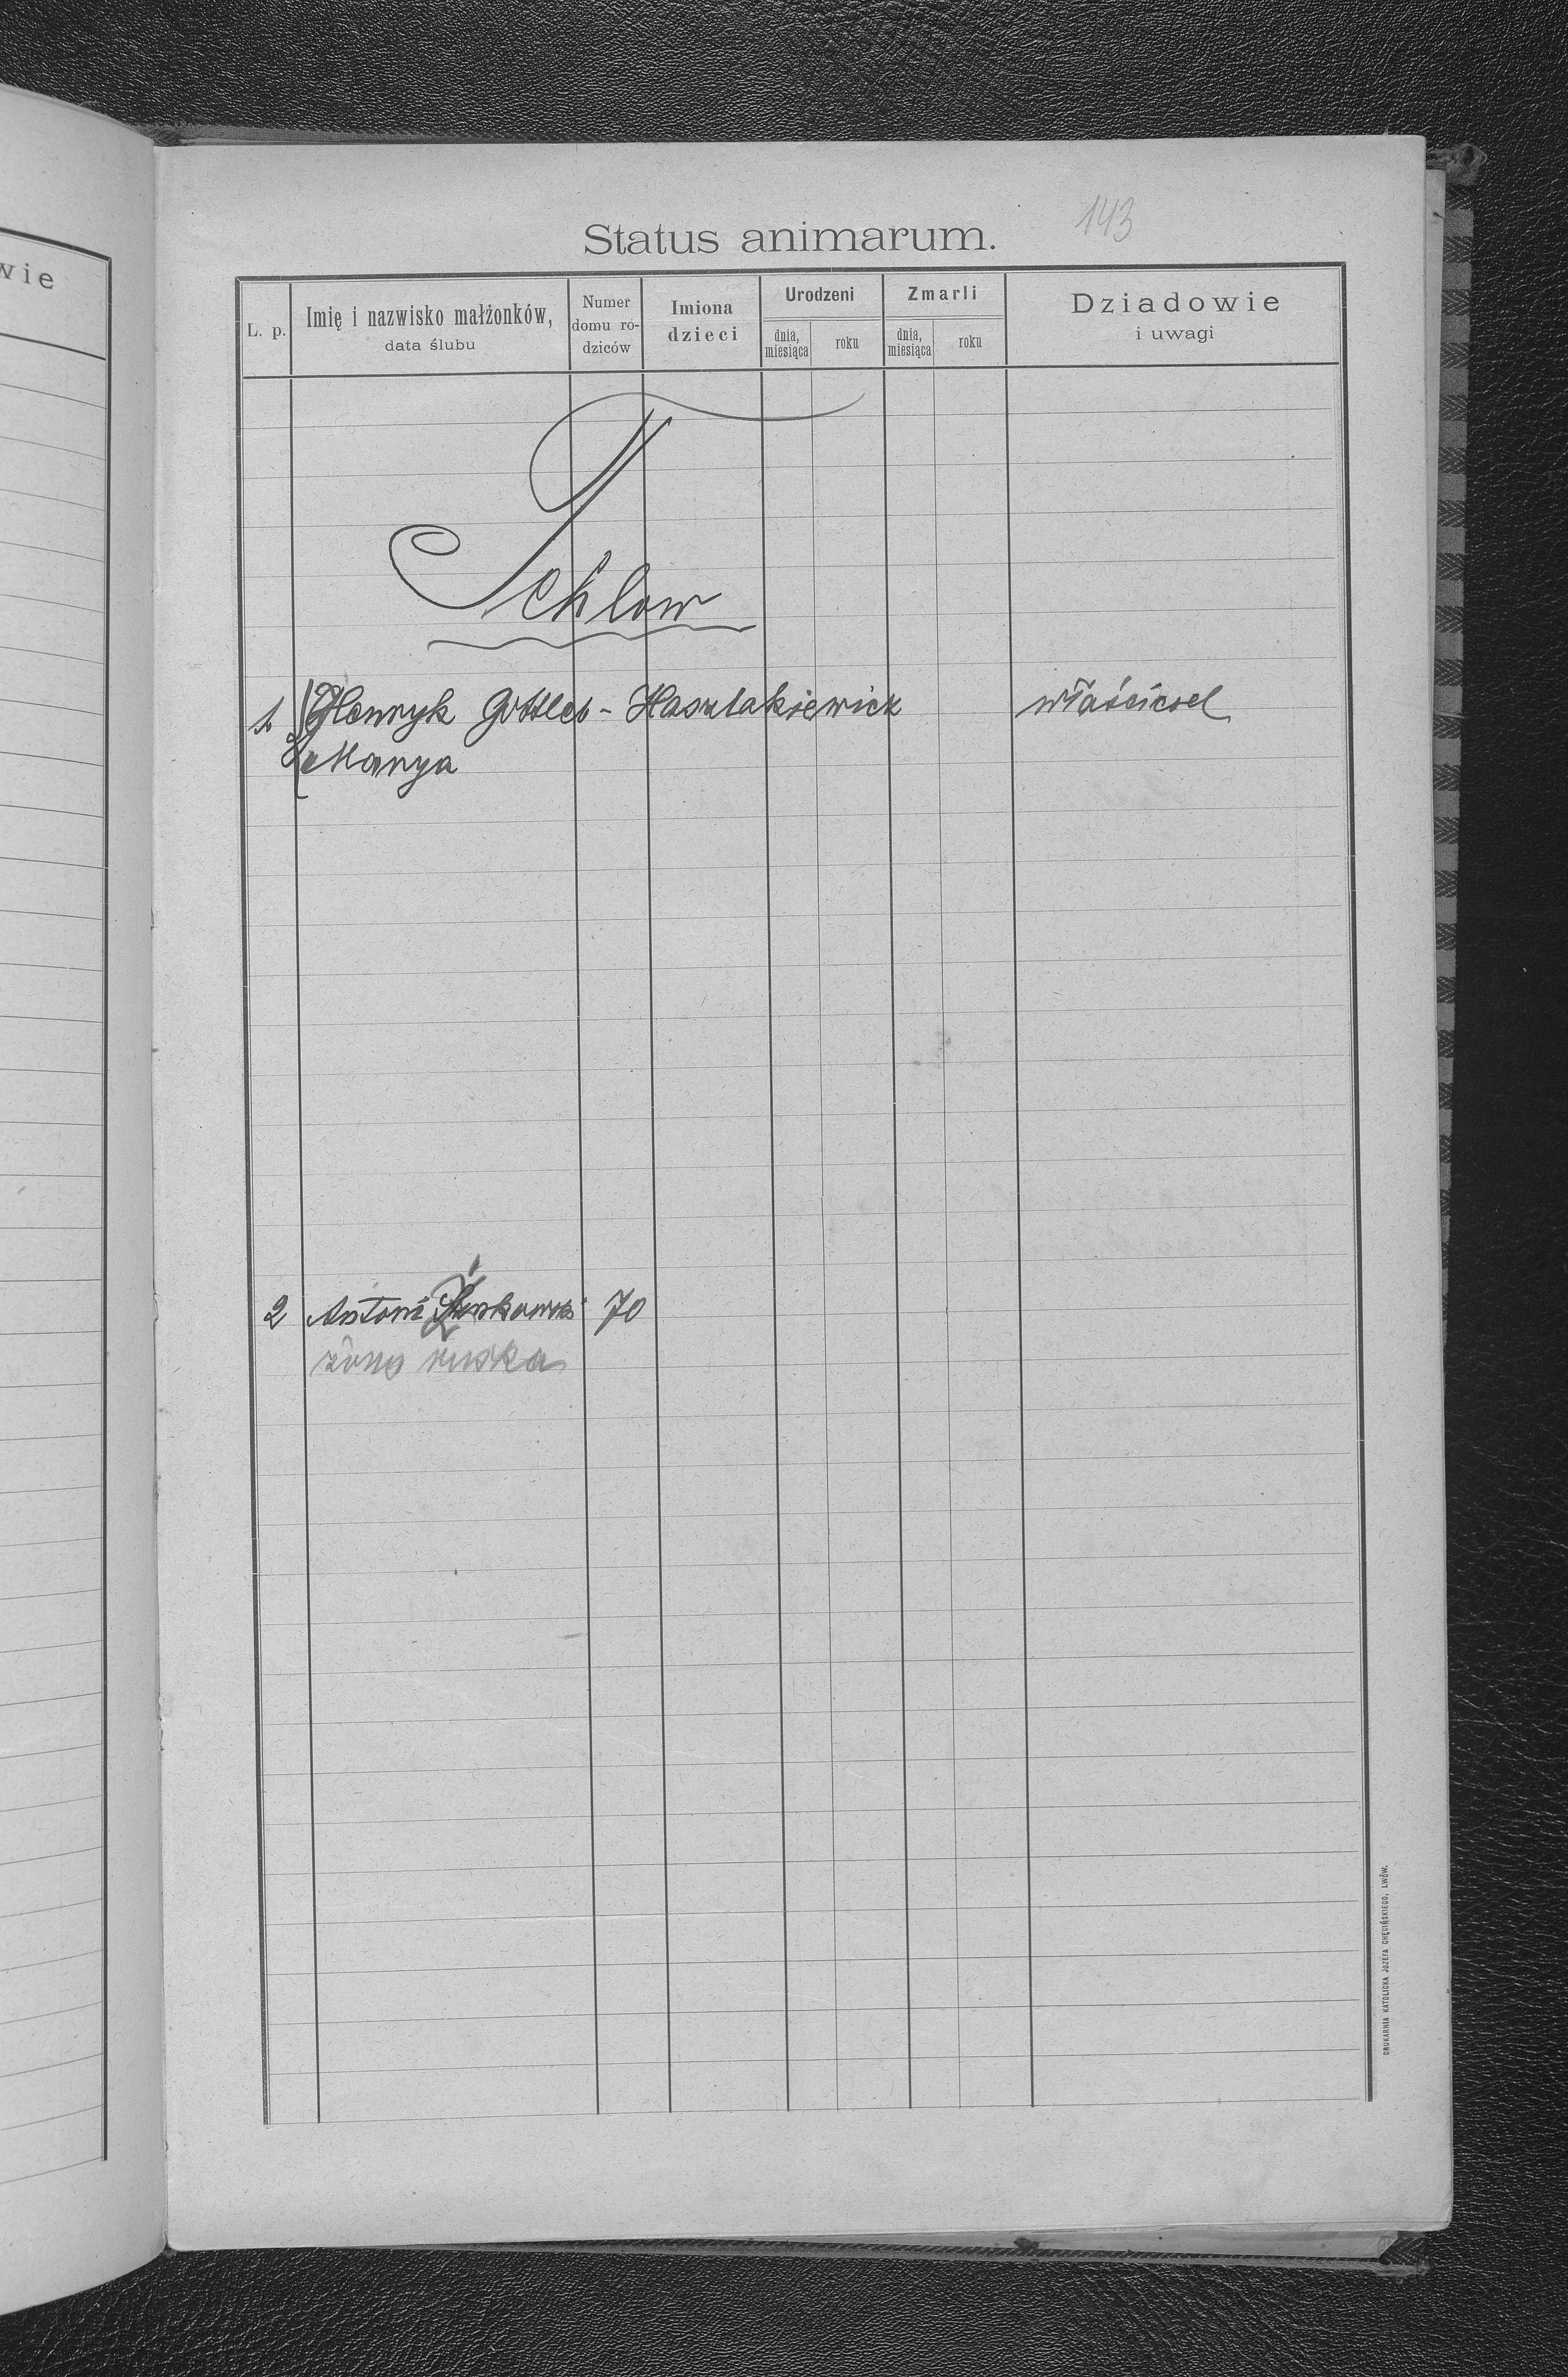 wie
143
Status animarum.
L. p.
Imię i nazwisko małżonków,
data ślubu
Numer
domu ro-
dziców
Imiona
dzieci
Urodzeni
dnia,
miesiąca
roku
Zmarli
dnia,
miesiąca
roku
Dziadowie
i uwagi
1 Henryk Gottleb - Haszlakiewicz właściciel
Marya
2 Antoni 70
żona ruska
DRUKARNIA KATOLICKA JÓZEFA CHĘCIŃSKIEGO, LWÓW.